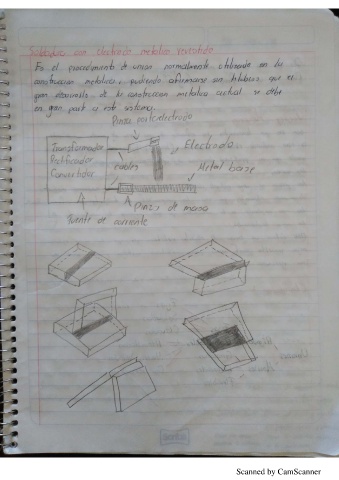 Soldadura con Electrodo metalico revestido
Es el procedimiento de union normalmente utilizado en la
construccion metalica, pudiendo afirmarse sin titubios, que el
gran desarrollo de la construccion metalica actual se debe
en gran parte a este sistema.
Pinza portaelectrodo
Transformador
Rectificador
Convertidor
Electrodo
cables
Metal base
Pinza de masa
fuente de corriente
Scanned by CamScanner